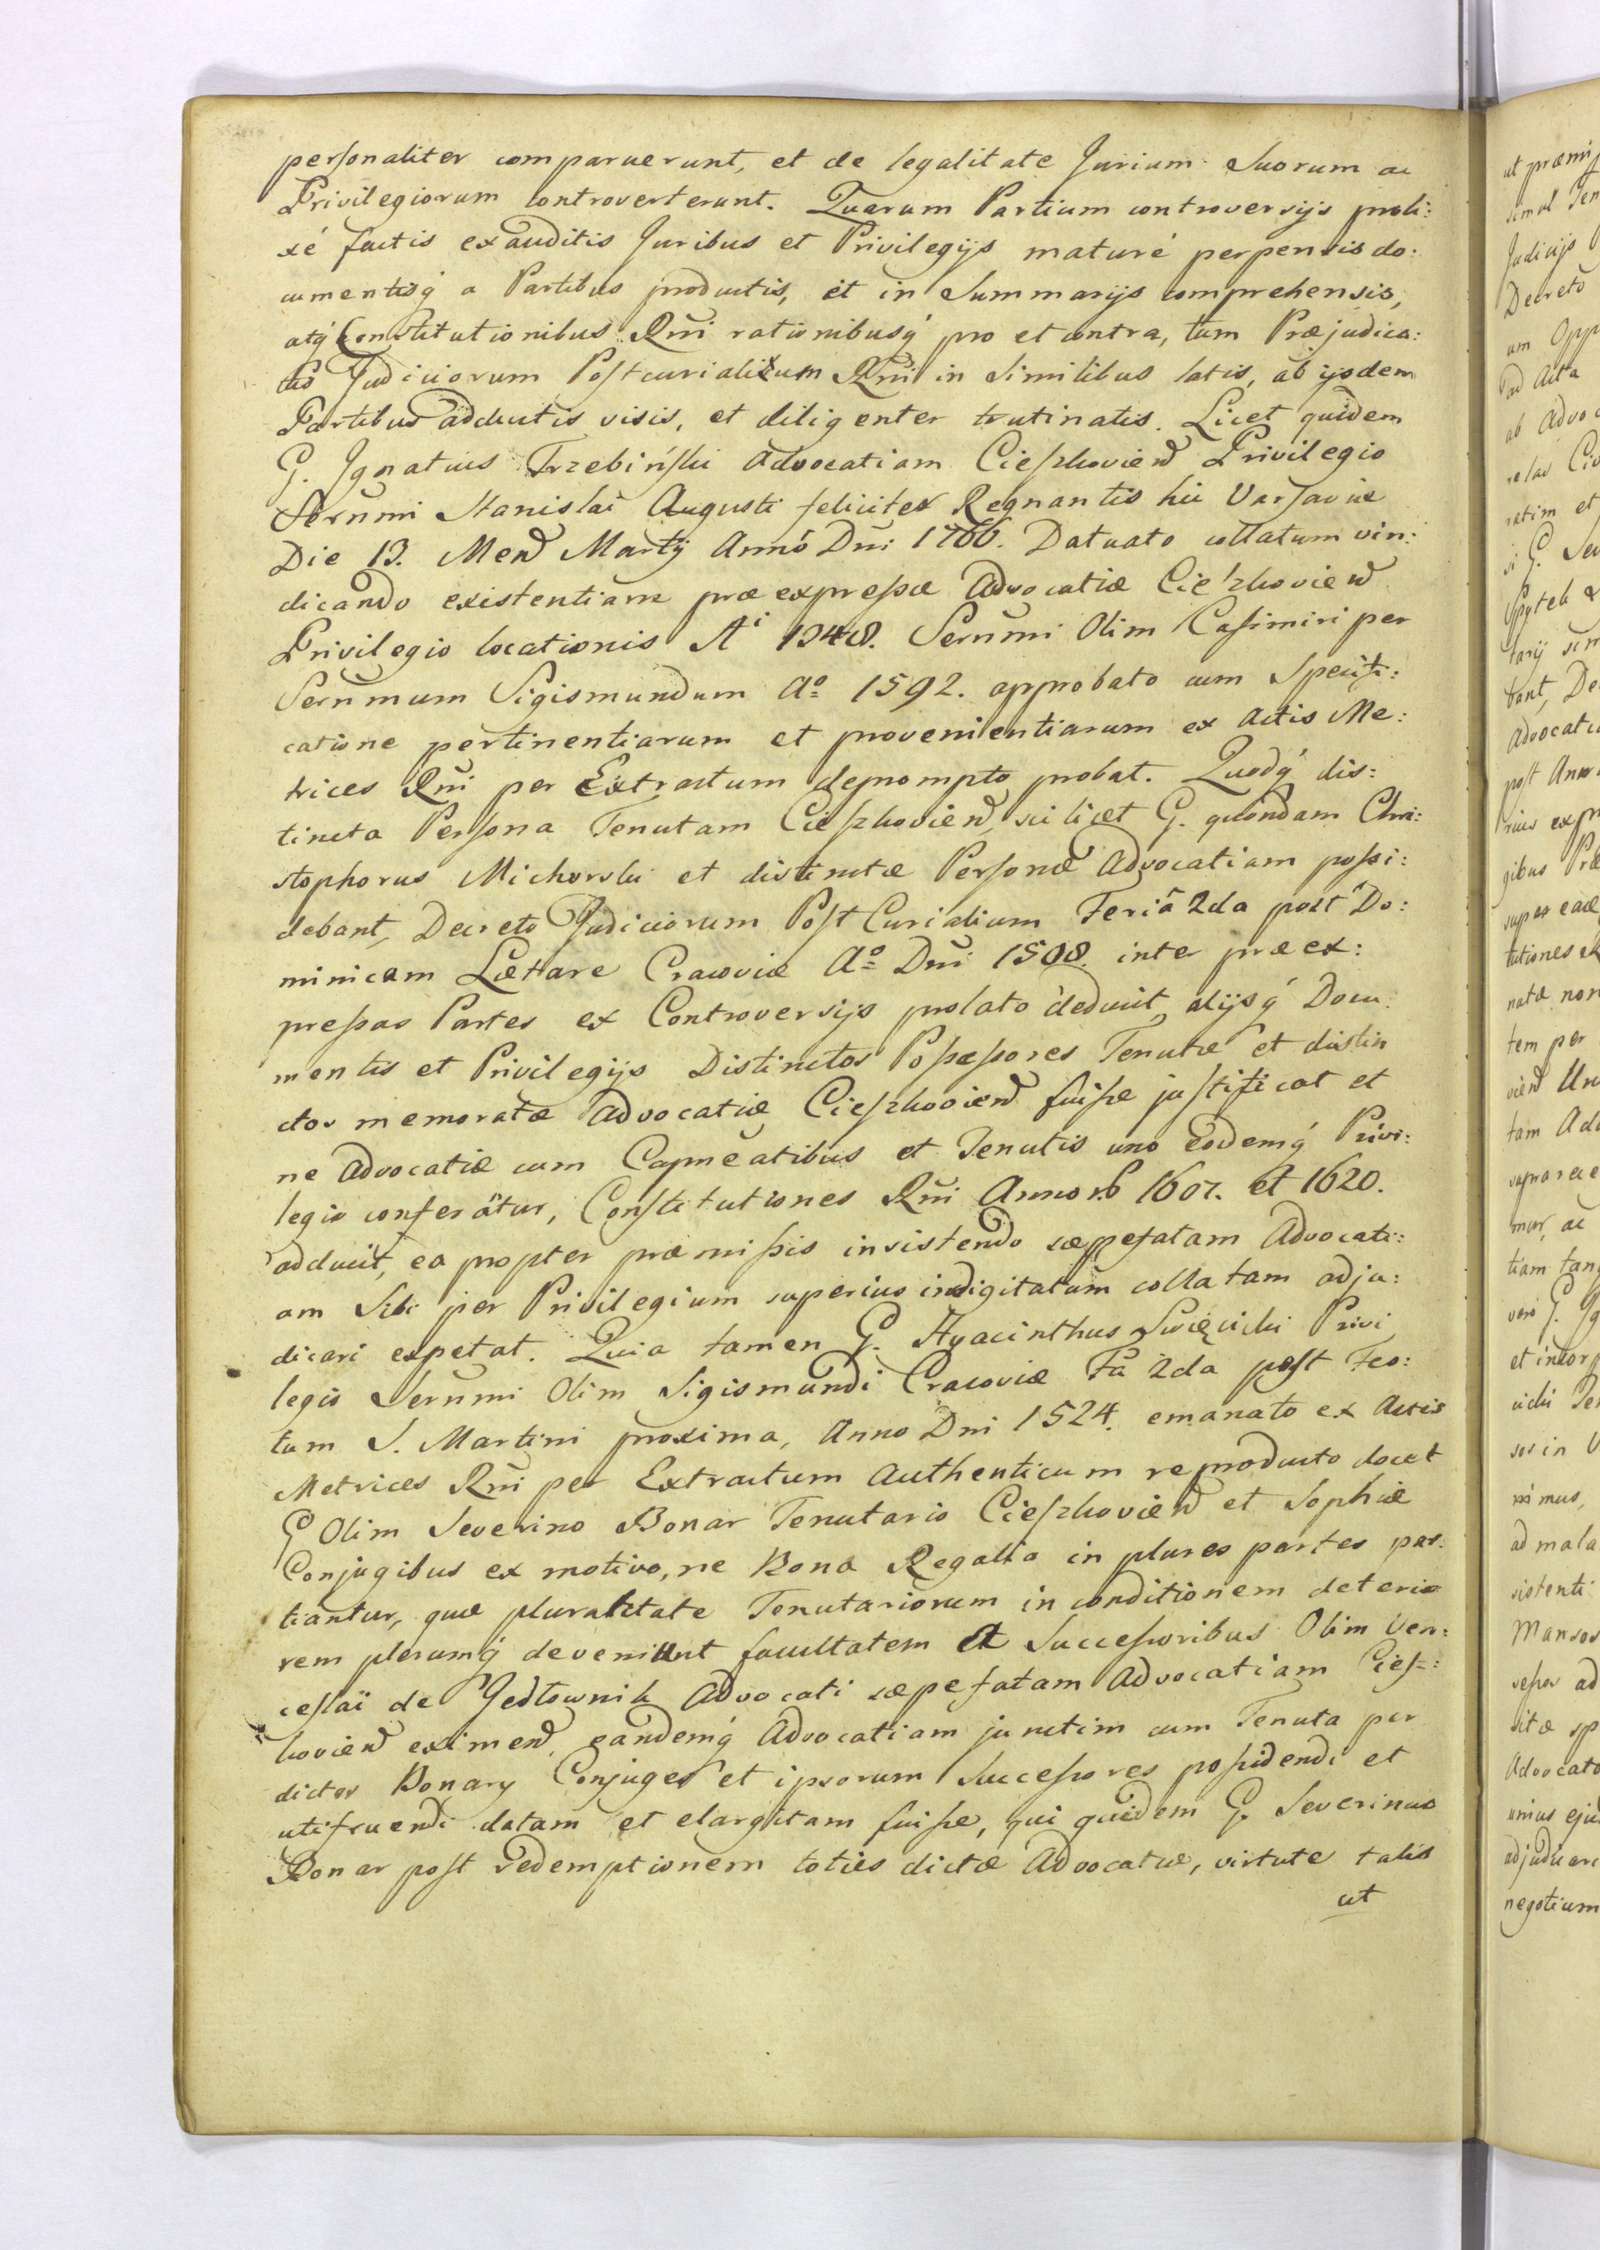 personaliter comparuerunt, et de legalitate Jurium Suorum ac
Privilegiorum controverterunt. Quarum Partium controversijs proli:
xé factis exauditis Juribus et Privilegijs maturé perpensis do:
cumentisq́ a Partibus productis, et in Summarijs comprehensis,
atq́ Constitutionibus Rñi rationibusq́ pro et contra, tum Præjudica:
tis Judiciorum Postcurialium Rñi in Similibus latis, ab ijsdem
Partibus adductis visis, et diligenter trutinatis. Licet quidem
G. Ignatius Trzebiński Advocatiam Cieszkovień Privilegio
Serñmi Stanislai Augusti feliciter Regnantis hic Varsaviæ
Die 13. Meń Martij Anno Dñi 1766. Datuato collatum vin:
dicando existentiam præexpressæ Advocatiæ Cieszkovień
Privilegio locationis Aⁱ 1348. Serñmi Olim Casimiri per
Serñmum Sigismundum Aº 1592. approbato cum Specifi:
catione pertinentiarum et provenientiarum ex Actis Me:
trices Rñi per Extractum deprompto probat. Quodq́ dis:
tincta Persona Tenutam Cieszkovień, scilicet G. quondam Chri:
stophorus Michorski et distinctæ Personæ Advocatiam possi:
debant, Decreto Judiciorum Post Curialium Feriâ 2da post Do:
minicam Lætare Cracoviæ Aº Dñi 1508. inter præex:
pressas Partes ex Controversijs prolato deducit, alijsq́ Docu
mentis et Privilegijs Distinctos Possessores Tenutæ et distin
ctos memoratæ Advocatiæ Cieszkovień fuisse justificat et
ne Advocatiæ cum Capneatibus et Tenutis uno Eodemq́ Privi:
legio conferatur, Constitutiones Rñi Annorũ 1607. et 1620.
adducit, ea propter præmissis insistendo sæpefatam Advocati:
am Sibi per Privilegium superius indigitatum collatam adju:
dicari expetat. Quia tamen G. Hyacinthus Święcicki Privi
legio Serñmi Olim Sigismundi Cracoviæ Fã 2da post Fes:
tum S. Martini proxima, Anno Dni 1524. emanato ex Actis
Metrices Rñi per Extractum Authenticum reproducto docet
G Olim Severino Bonar Tenutario Cieszkovień et Sophiæ
Conjugibus ex motivo, ne Bona Regalia in plures partes par:
tiantur, quæ pluralitate Tenutariorum in conditionem deterio
rem plerumq́ deveniunt facultatem A Successoribus Olim Ven:
ceslai de Jedłownik Advocati sæpefatam Advocatiam Ciesz:
kovień eximeń, eandemq́ Advocatiam junctim cum Tenuta per
dictos Bonary Conjuges et ipsorum Successores possidendi et
utifruendi datam et elargitam fuisse, qui quidem G. Severinus
Bonar post redemptionem toties dictæ Advocatiæ, virtute talis
ut